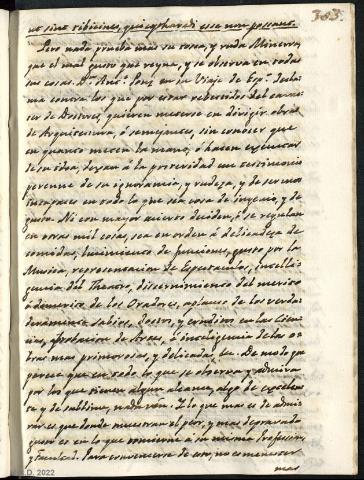 383.
ut sint tibicines, qui cytharedi esse non possunt.
Pero nada prueba mas su tosca, y ruda Minerva,
que el mal gusto que reyna, y se observa en todas
sus cosas. Dn. Anto. Ponz en su Viaje de Esp. decla
ma contra los que por estar rebestidos del carac
ter de Doctores, quieren meterse en dirigir obras
de Arquitectura, ó semejantes, sin conocer que
en quanto meten la mano, ó hacen executar
de su idea, dexan á la posteridad un testimonio
perenne de su ignorancia, y rudeza, y de ser unos
incapaces en todo lo que sea cosa de ingenio, y de
gusto. Ni con mayor acierto deciden, ó se regulan
en otras mil cosas, sea en orden á delicadeza de
comidas, lucimiento de funciones, gusto por la
Musica, representacion de Espectaculos, inteli
gencia del Theatro, discernimiento del merito
ó demerito de los Oradores, aplauso de los verda
deramente sabios, doctos, y eruditos en las Cien
cias, aprobacion de Artes, é inteligencia de las o
tras mas primorosas, y delicadas, &c. De modo que
parece que en todo lo que se observa, y admira
por los que tienen algun alcance, algo de excelen
te y de sublime, nada
Y lo que mas es de admi
rar es que donde muestran el peor, y mas depravado
gusto es en lo que concierne á su misma Profesion,
y Facultad. Para convencerse de esto, no es menester
mas
D. 2022